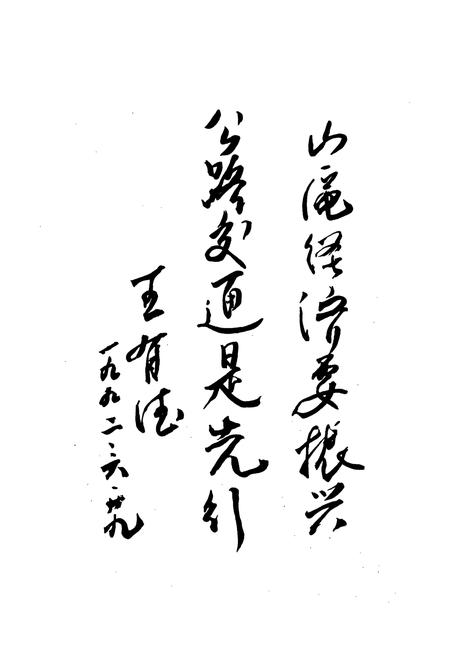 山區经济要振兴
公路交通是先行
王有德
一九九二·六·廿九